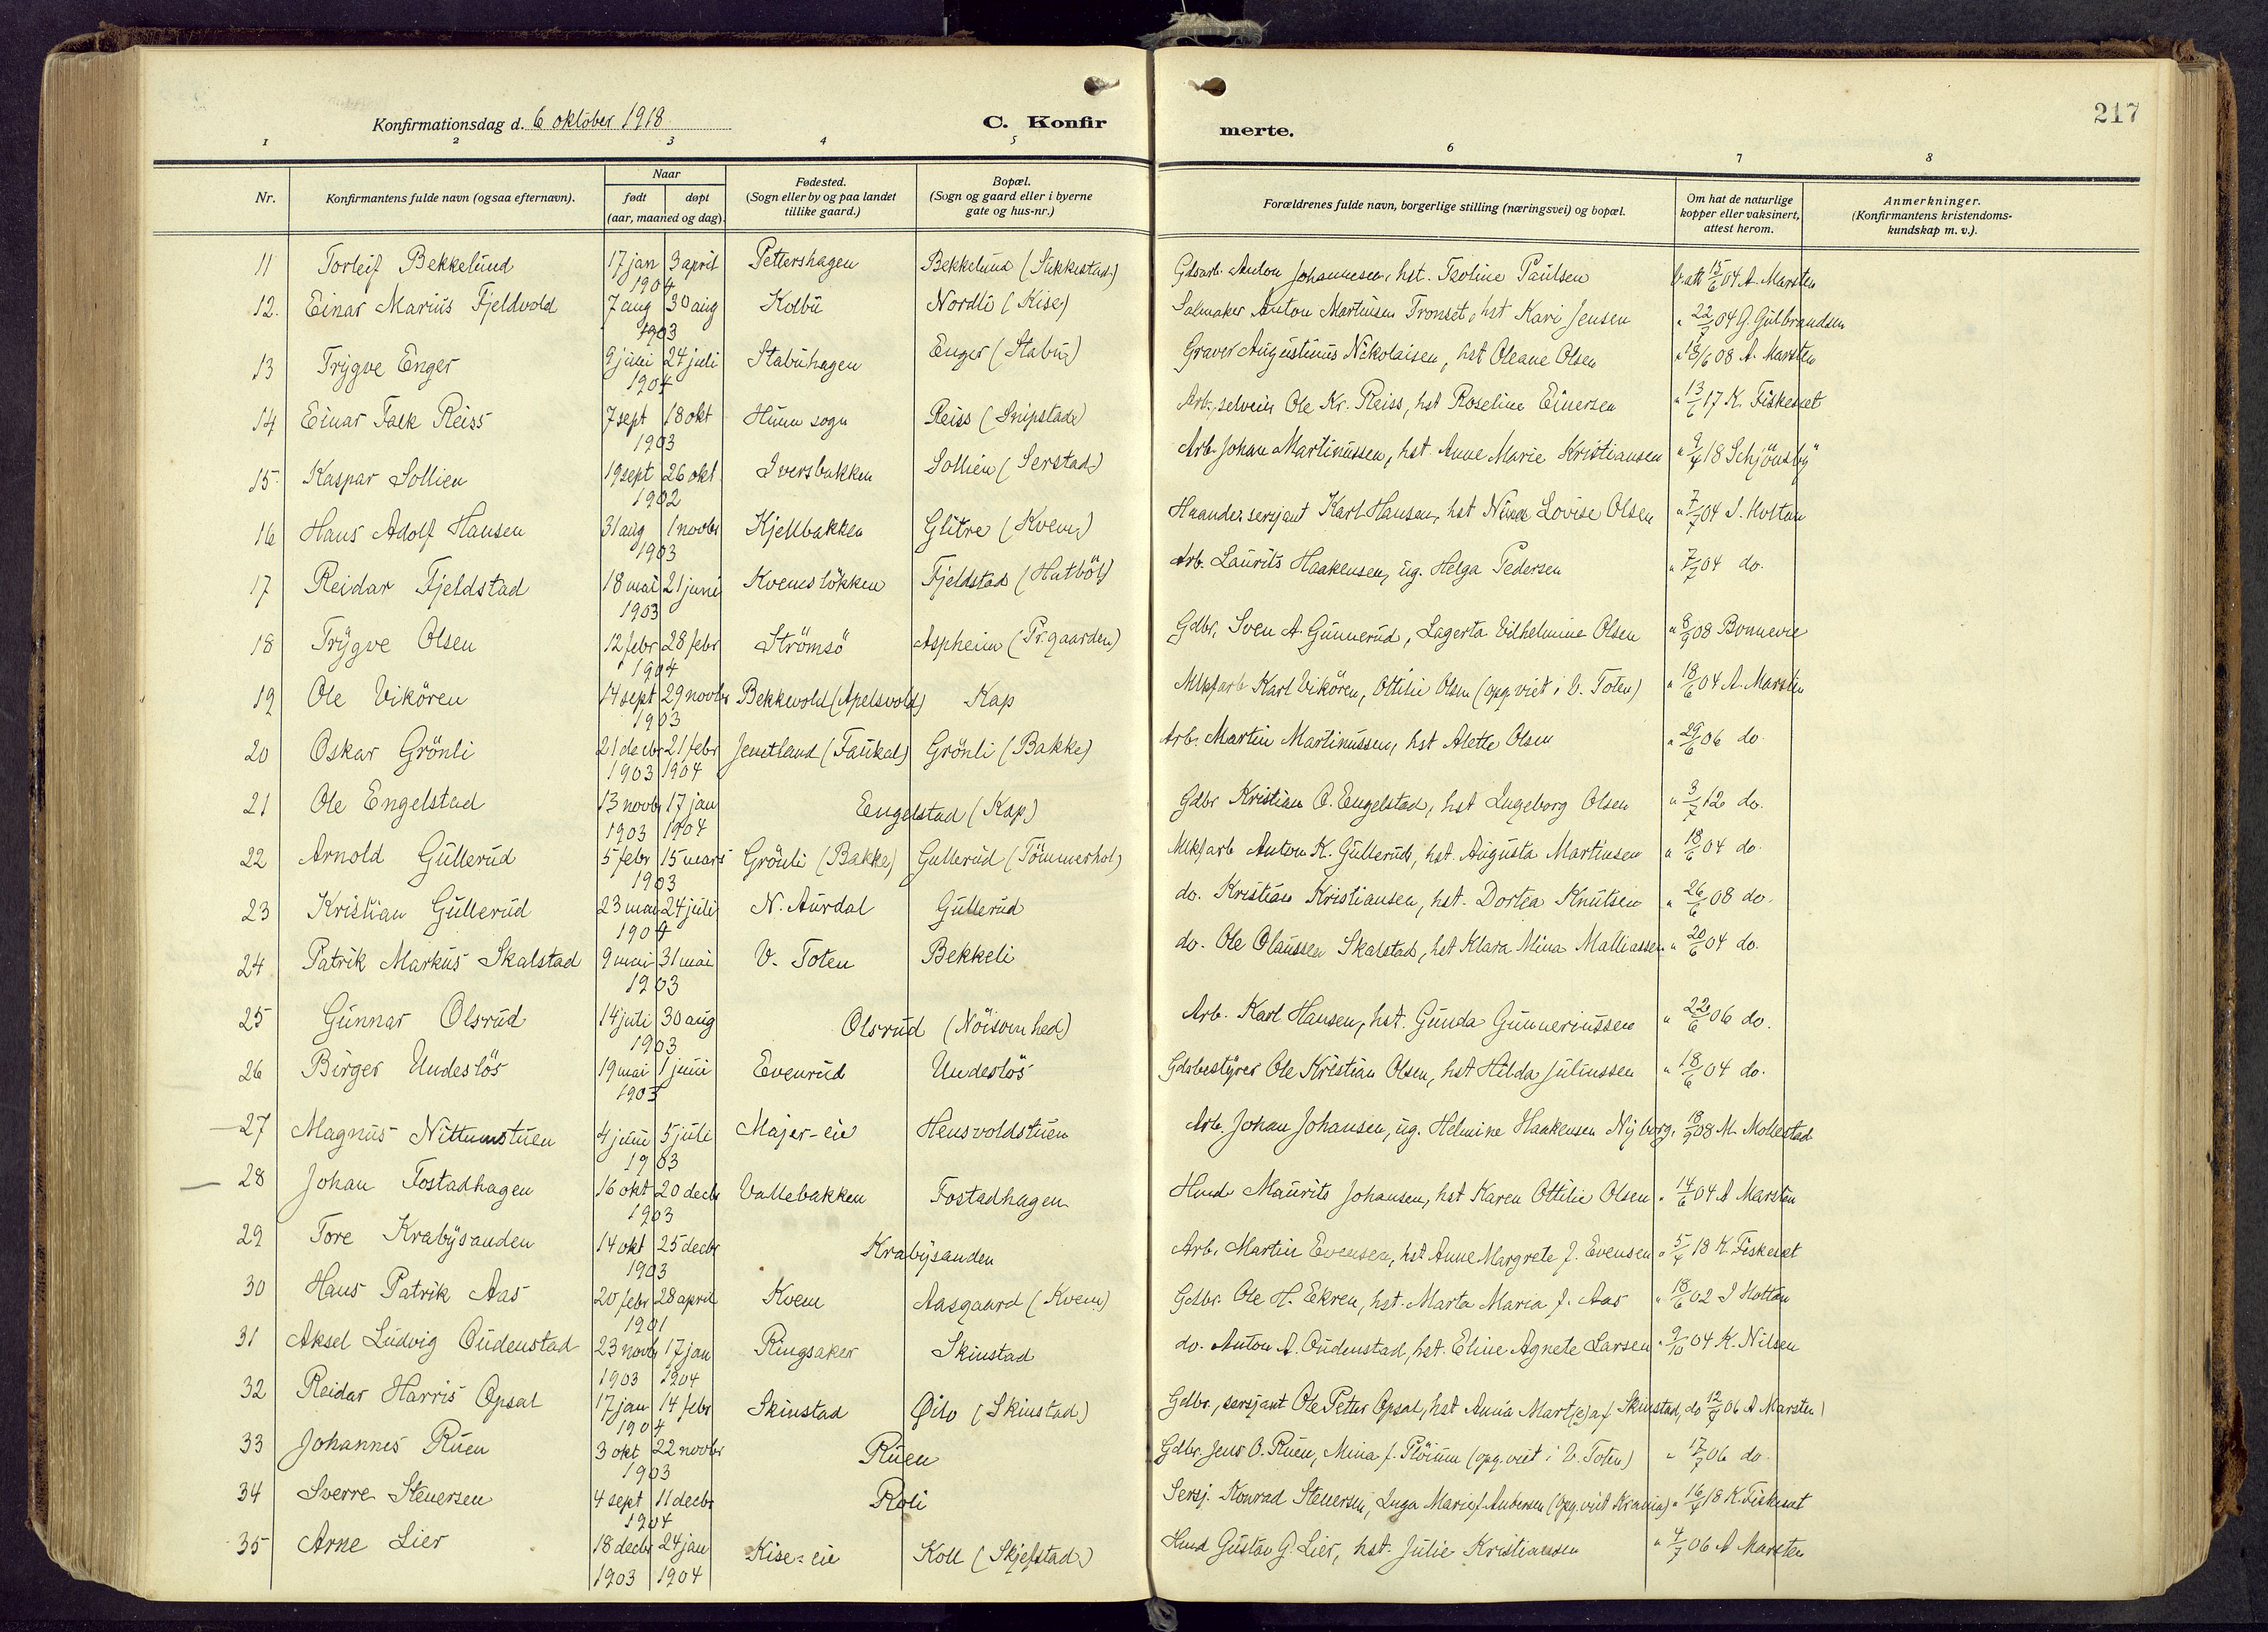 217
Konfirmationsdag d. 6 oktober 1918
C. Konfir
merte.
1 2 3 4 5 6 7 8
Nr.
Konfirmantens fulde navn (ogsaa efternavn).
Naar
født døpt
(aar, maaned og dag).
Fødested.
(Sogn eller by og paa landet
tillike gaard.)
Bopæl.
(Sogn og gaard eller i byerne
gate og hus-nr.)
Forældrenes fulde navn, borgerlige stilling (næringsvei) og bopæl.
Om hat de naturlige
kopper eller vaksinert,
attest herom.
Anmerkninger.
(Konfirmantens kristendoms-
kundskap m. v.).
11 Torleif Bekkelund 17 jan 3 april 1904 Pettershagen Bekkelund (Sukkestad) Gdsarb. Anton Johannesen, hst. Troline Paulsen V. att 15/6 04 A. Marsten
12. Einar Marius Fjeldvold 7 aug 30 aug 1903 Kolbu Nordli (Kise) Salmaker Anton Martinsen Tronset, hst Kari Jensen " 22/7 04 G. Gulbrandsen
13 Trygve Enger 9 juni 24 juli 1904 Stabuhagen Enger (Stabu) Graver Augustinus Nikolaisen, hst Oleane Olsen " 18/6 08 A. Marsten
14 Einar Falk Reiss 7 sept 18 okt 1903 Hunn sogn Reiss (Snipstad) Arb., selveier Ole Kr. Reiss, hst Roseline Einersen " 13/6 17 K. Fiskeset
15 Kaspar Sollien 19 sept 26 okt 1902 Iversbakken Sollien (Serstad) Arb. Johan Martinussen, hst. Anne Marie Kristiansen " 9/4 18 Schjönsby
16 Hans Adolf Hansen 31 aug 1 novbr 1903 Kjellbakken Glitre (Kvem) Haandv. sersjant Karl Hansen, hst Lovise Olsen " 7/7 04 I. Hottan
17 Reidar Fjeldstad 18 mai 21 juni 1903 Kvemslökken Fjeldstad (Hatböl) Arb. Laurits Haakensen, ug. Helga Pedersen " 7/7 04 do.
18 Trygve Olsen 12 febr 28 febr 1904 Strömsö Aspheim (Pr.gaarden) Gdbr. Sven A. Gunnerud, Lagerta Vilhelmine Olsen " 8/9 08 Bonnevie
19 Ole Vikören 14 sept 29 novbr 1903 Bekkevold (Apelsvold) Kap Mlkf arb Karl Vikören, Ottilie Olsen (opg. viet i V. Toten) " 18/6 04 A. Marsten
20 Oskar Grönli 21 decbr 1903 21 febr 1904 Jemtland (Faukal) Grönli (Bakke) Arb. Martin Martinussen, hst Alette Olsen " 29/6 06 do
21 Ole Engelstad 13 novbr 1903 17 jan 1904 Engelstad (Kap) Gdbr Kristian O. Engelstad, hst Ingeborg Olsen " 3/7 12 do.
22 Arnold Gullerud 5 febr 15 mars 1903 Grönli (Bakke) Gullerud (Tömmerhol) Mlkf arb Anton K. Gullerud, hst. Augusta Martinsen " 18/6 04 do.
23 Kristian Gullerud 23 mai 24 juli 1904 N. Aurdal Gullerud do. Kristian Kristiansen, hst. Dortea Knutsen " 26/6 08 do.
24 Patrik Markus Skalstad 9 mai 31 mai 1903 V. Toten Bekkeli do. Ole Olaussen Skalstad, hst Klara Mina Mathiassen " 20/6 04 do.
25 Gunnar Olsrud 14 juli 30 aug 1903 Olsrud (Nöisomhed) Arb. Karl Hansen, hst. Gunda Gunneriussen " 22/6 06 do.
26 Birger Undeslös 19 mai 1 juni 1903 Evenrud Undeslös Gdsbestyrer Ole Kristian Olsen, hst Hilda Juliussen " 18/6 04 do.
27 Magnus Nittumstuen 4 juni 5 juli 1903 Majer-eie Hensvoldstuen Arb. Johan Johansen, ug. Helmine Haakensen Nyborg. 18/9 08 M. Mollestad
28 Johan Tostadhagen 16 okt 20 decbr 1903 Vallebakken Fostadhagen Hmd. Maurits Johansen, hst Karen Ottilie Olsen " 14/6 04 A Marsten
29 Tore Krabysanden 14 okt 25 decbr 1903 Krabysanden Arb. Martin Evensen, hst Anne Margrete J. Evensen " 5/4 18 K. Fiskeset
30 Hans Patrik Aas 20 febr 28 april 1901 Kvem Aasgaard (Kvem) Gdbr. Ole H. Ekren, hst. Marta Maria J. Aas " 18/6 02 I Hottan
31 Aksel Ludvig Oudenstad 23 novbr 1903 17 jan 1904 Ringsaker Skinstad do. Anton A. Oudenstad, hst. Eline Agnete Larsen " 9/10 04 K. Nilsen
32 Reidar Harris Opsal 17 jan 14 febr 1904 Skinstad Öilo (Skinstad) Gdbr., sersjant Ole Petter Opsal, hst Anna Mart(e) af Skinstad, do 12/7 06 A Marsten
33 Johannes Ruen 3 okt 22 novbr 1903 Ruen Gdbr. Jens O. Ruen, Mina f. Plöium (opg. viet i V. Toten) " 17/7 06 do.
34 Sverre Stenersen 4 sept 11 decbr 1904 Roli Sersj. Konrad Stenersen, Inga Marie f. Andersen (opg. viet Krania) " 16/4 18 K. Fiskeset
35 Arne Lier 18 decbr 1903 24 jan 1904 Kise-eie Koll (Skjefstad) Hmd Gustav G. Lier, hst. Julie Kristiansen " 4/7 06 A Marsten